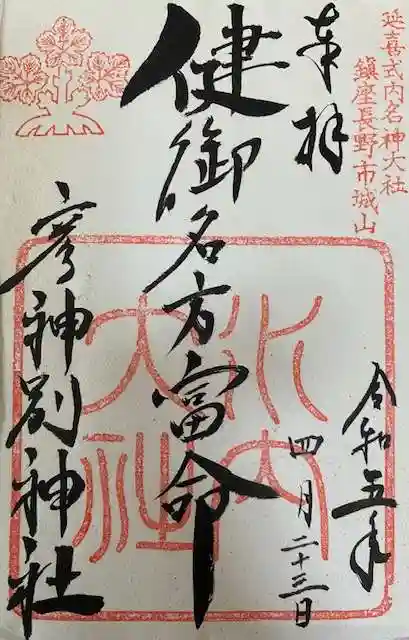 延喜式内名神大社
鎮座長野市城山
奉拝
健御名方富命
彦神別神社
水内大社
令和五年
四月二十三日